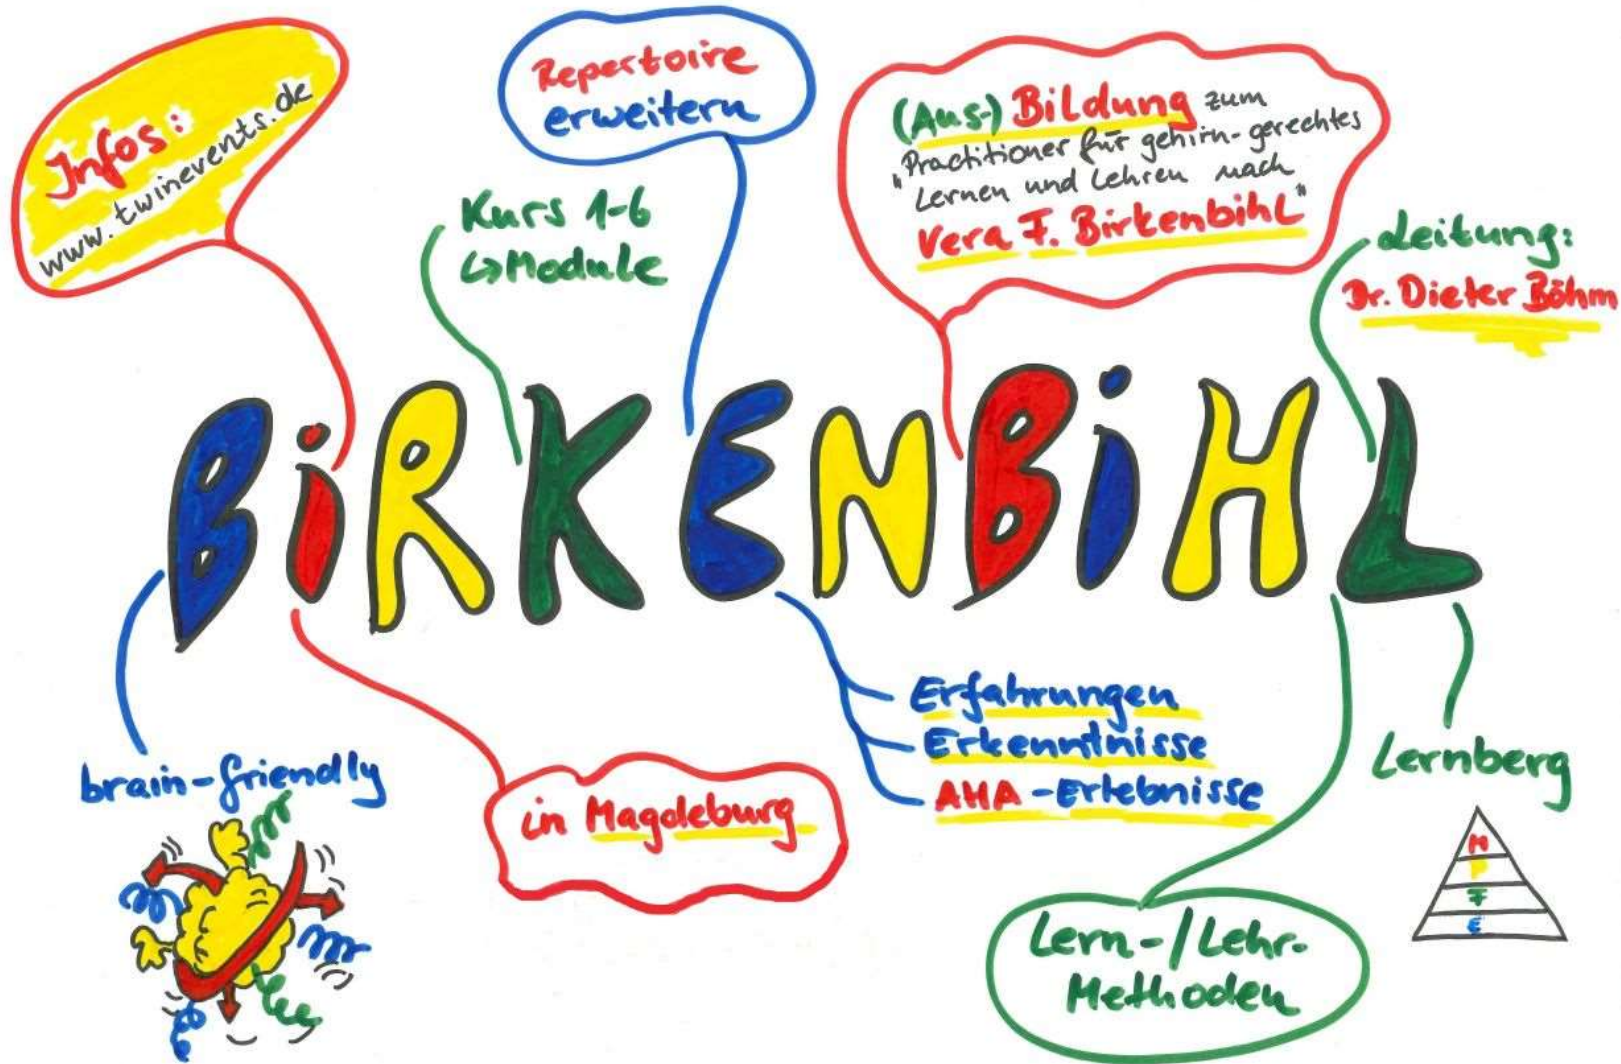 Infos:
www.twinevents.de
Repertoire
erweitern
Kurs 1-6
↳Module
(Aus-) Bildung zum
"Practitioner für gehirn-gerechtes
Lernen und Lehren nach
Vera F. Birkenbihl"
Leitung:
Dr. Dieter Böhm
BiRKENBiHL
brain-friendly
in Magdeburg
Erfahrungen
Erkenntnisse
AHA-Erlebnisse
Lernberg
M
P
F
E
Lern-/Lehr-
Methoden